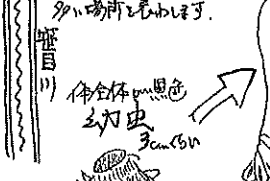 多い場所を表わします.
堰目川
体全体が黒色
幼虫
3cmくらい